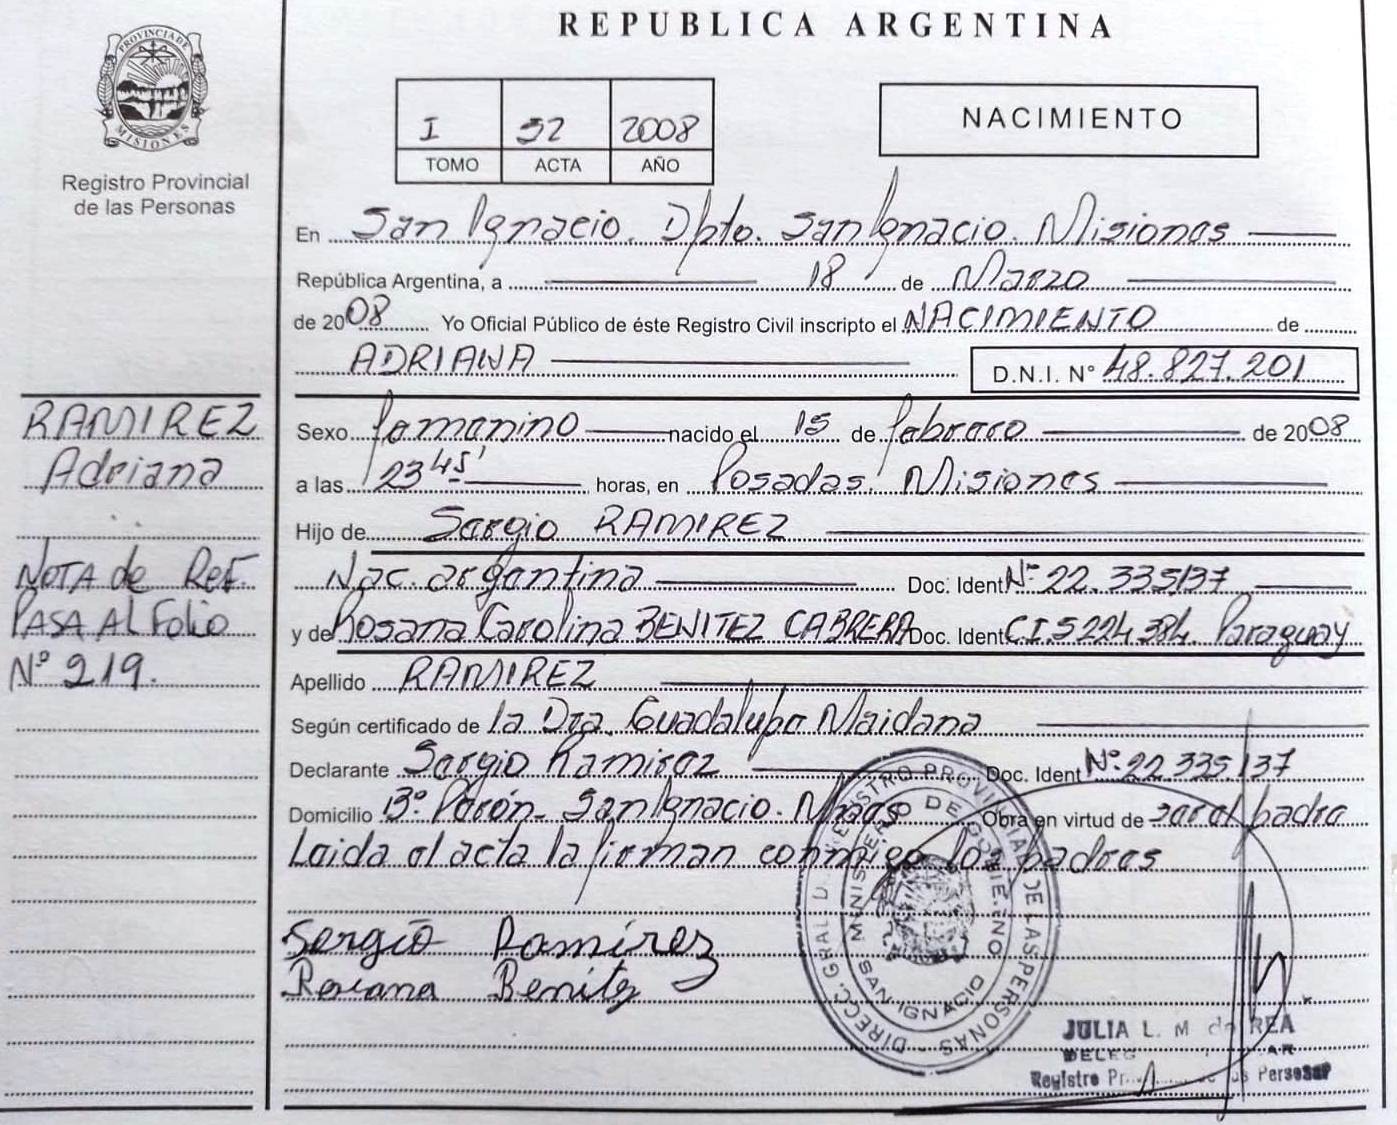 REPUBLICA ARGENTINA
PROVINCIA DE MISIONES
Registro Provincial
de las Personas
I 52 2008
TOMO ACTA AÑO
NACIMIENTO
En San Ignacio. Dpto. San Ignacio. Misiones
República Argentina, a 18 de Marzo
de 2008 Yo Oficial Público de éste Registro Civil inscripto el NACIMIENTO de
ADRIANA
D.N.I. N° 48.827.201
RAMIREZ
Adriana
NOTA de REF.
PASA AL Folio
Nº 219.
Sexo femenino nacido el 15 de febrero de 2008
a las 23 45' horas, en Posadas. Misiones
Hijo de Sergio RAMIREZ
Nac. argentina Doc. Ident Nº 22.335137
y de Rosana Carolina BENITEZ CABRERA Doc. Ident C.I. 5224384. Paraguay
Apellido RAMIREZ
Según certificado de la Dra. Guadalupe Maidana
Declarante Sergio Ramirez Doc. Ident Nº 22335137
Domicilio Bº Perón. San Ignacio. Mnes Obra en virtud de ser el padre
Leida el acta la firman conmigo los padres
Sergio Ramirez
Roxana Benitez
DIRECC. GRAL D. REGISTRO PROVINCIAL DE LAS PERSONAS
MINISTERIO DE GOBIERNO
SAN IGNACIO
JULIA L. M de REA
Registro